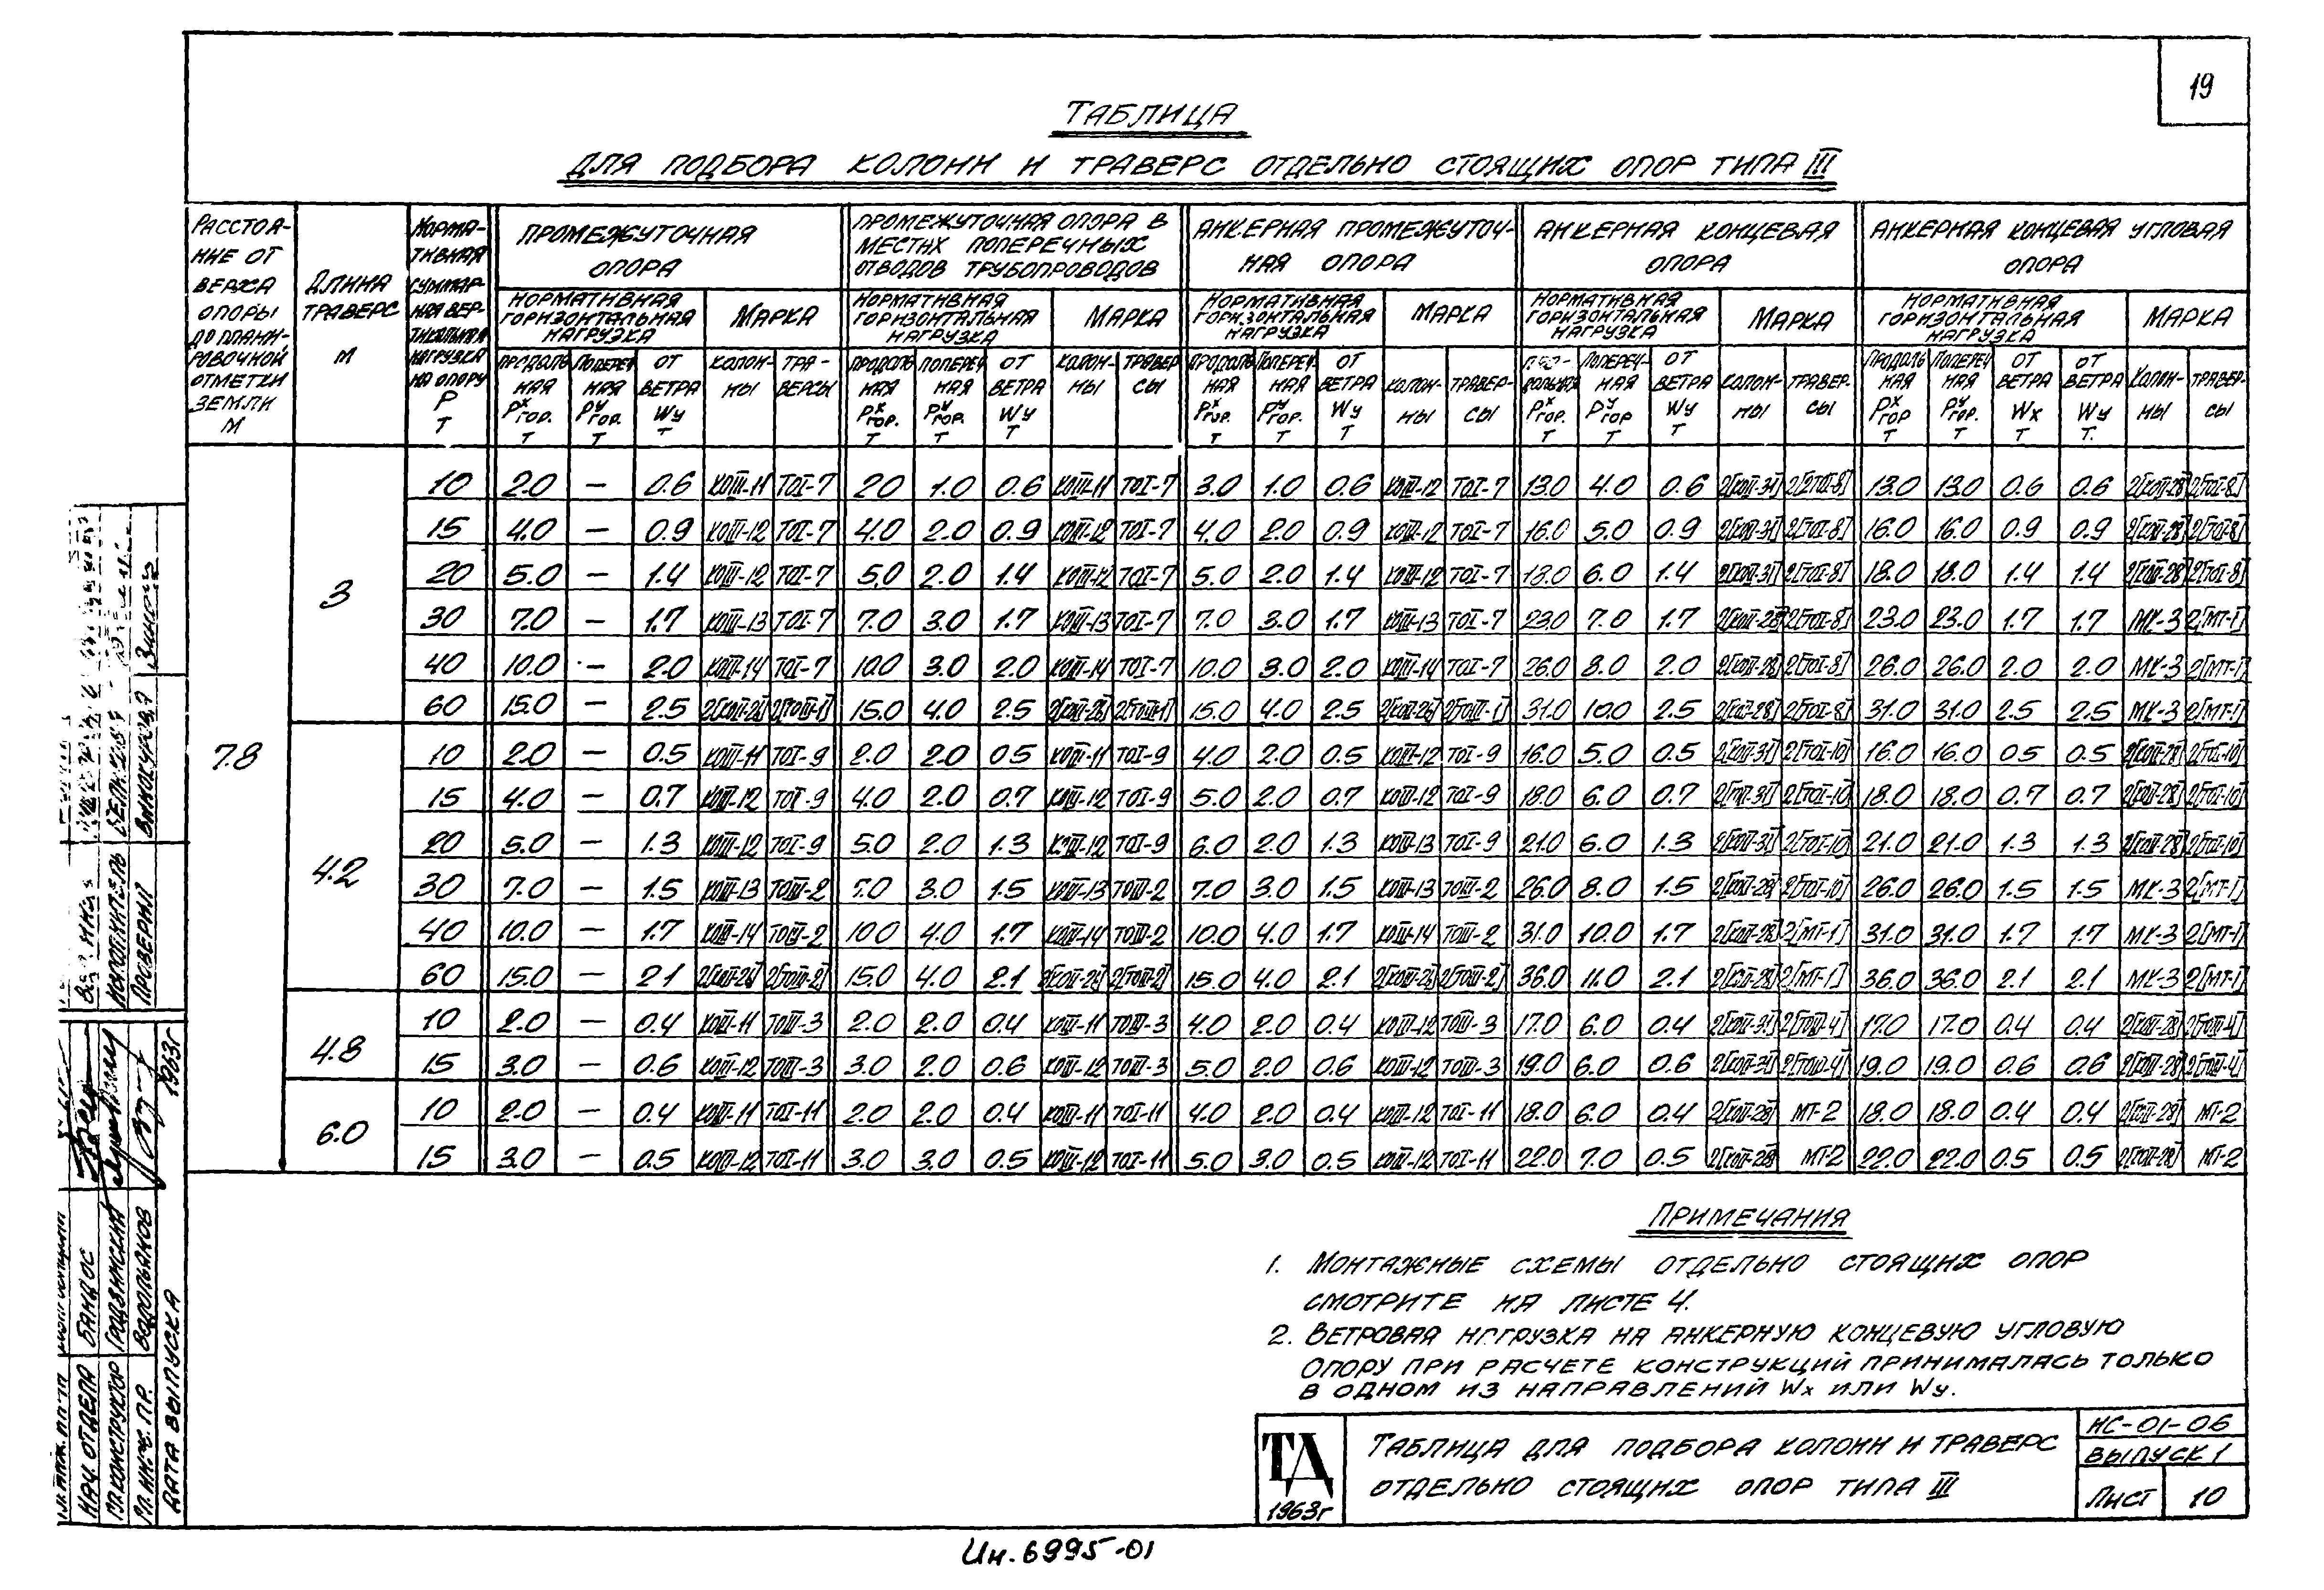 19
ТАБЛИЦА
ДЛЯ ПОДБОРА КОЛОНН И ТРАВЕРС ОТДЕЛЬНО СТОЯЩИХ ОПОР ТИПА III
РАССТОЯ-
НИЕ ОТ
ВЕРХА
ОПОРЫ
ДО ПЛАНИ-
РОВОЧНОЙ
ОТМЕТКИ
ЗЕМЛИ
М
ДЛИНА
ТРАВЕРС
М
НОРМА-
ТИВНАЯ
СУММАР-
НАЯ ВЕР-
ТИКАЛЬНАЯ
НАГРУЗКА
НА ОПОРУ
P
Т
ПРОМЕЖУТОЧНАЯ
ОПОРА
ПРОМЕЖУТОЧНАЯ ОПОРА В
МЕСТАХ ПОПЕРЕЧНЫХ
ОТВОДОВ ТРУБОПРОВОДОВ
АНКЕРНАЯ ПРОМЕЖУТОЧ-
НАЯ ОПОРА
АНКЕРНАЯ КОНЦЕВАЯ
ОПОРА
АНКЕРНАЯ КОНЦЕВАЯ УГЛОВАЯ
ОПОРА
НОРМАТИВНАЯ ГОРИЗОНТАЛЬНАЯ НАГРУЗКА МАРКА НОРМАТИВНАЯ ГОРИЗОНТАЛЬНАЯ НАГРУЗКА МАРКА НОРМАТИВНАЯ ГОРИЗОНТАЛЬНАЯ НАГРУЗКА МАРКА НОРМАТИВНАЯ ГОРИЗОНТАЛЬНАЯ НАГРУЗКА МАРКА НОРМАТИВНАЯ ГОРИЗОНТАЛЬНАЯ НАГРУЗКА МАРКА
ПРОДОЛЬНАЯ Pxгор. Т ПОПЕРЕЧНАЯ Pyгор. Т ОТ ВЕТРА Wy Т КОЛОН-НЫ ТРА-ВЕРСЫ
ПРОДОЛЬНАЯ Pxгор. Т ПОПЕРЕЧНАЯ Pyгор. Т ОТ ВЕТРА Wy Т КОЛОН-НЫ ТРАВЕРСЫ
ПРОДОЛЬНАЯ Pxгор. Т ПОПЕРЕЧНАЯ Pyгор. Т ОТ ВЕТРА Wy Т КОЛОН-НЫ ТРАВЕР-СЫ
Pxгор. Т ПОПЕРЕЧ-НАЯ Pyгор Т ОТ ВЕТРА Wy Т КОЛОН-НЫ ТРАВЕР-СЫ
ПРОДОЛЬНАЯ Pxгор Т ПОПЕРЕЧНАЯ Pyгор. Т ОТ ВЕТРА Wx Т ОТ ВЕТРА Wy Т. КОЛОН-НЫ ТРАВЕР-СЫ
7.8
3
10 2.0 — 0.6 КОIII-11 ТОI-7 20 1.0 0.6 КОIII-11 ТОI-7 3.0 1.0 0.6 КОIII-12 ТОI-7 13.0 4.0 0.6 2[КОII-31] 2[ТОI-8] 13.0 13.0 0.6 0.6 2[КОII-28] 2[ТОI-8]
15 4.0 — 0.9 КОIII-12 ТОI-7 4.0 2.0 0.9 КОIII-12 ТОI-7 4.0 2.0 0.9 КОIII-12 ТОI-7 16.0 5.0 0.9 2[КОII-31] 2[ТОI-8] 16.0 16.0 0.9 0.9 2[КОII-28] 2[ТОI-8]
20 5.0 — 1.4 КОIII-12 ТОI-7 5.0 2.0 1.4 КОIII-12 ТОI-7 5.0 2.0 1.4 КОIII-12 ТОI-7 18.0 6.0 1.4 2[КОII-31] 2[ТОI-8] 18.0 18.0 1.4 1.4 2[КОII-28] 2[ТОI-8]
30 7.0 — 1.7 КОIII-13 ТОI-7 7.0 3.0 1.7 КОIII-13 ТОI-7 7.0 3.0 1.7 КОIII-13 ТОI-7 23.0 7.0 1.7 2[КОII-28] 2[ТОI-8] 23.0 23.0 1.7 1.7 МК-3 2[МТ-1]
40 10.0 — 2.0 КОIII-14 ТОI-7 10.0 3.0 2.0 КОIII-14 ТОI-7 10.0 3.0 2.0 КОIII-14 ТОI-7 26.0 8.0 2.0 2[КОII-28] 2[ТОI-8] 26.0 26.0 2.0 2.0 МК-3 2[МТ-1]
60 15.0 — 2.5 2[КОII-26] 2[ТОIII-1] 15.0 4.0 2.5 2[КОII-26] 2[ТОIII-1] 15.0 4.0 2.5 2[КОII-26] 2[ТОIII-1] 31.0 10.0 2.5 2[КОII-28] 2[ТОI-8] 31.0 31.0 2.5 2.5 МК-3 2[МТ-1]
4.2
10 2.0 — 0.5 КОIII-11 ТОI-9 2.0 2.0 0.5 КОIII-11 ТОI-9 4.0 2.0 0.5 КОIII-12 ТОI-9 16.0 5.0 0.5 2[КОII-31] 2[ТОI-10] 16.0 16.0 0.5 0.5 2[КОII-28] 2[ТОI-10]
15 4.0 — 0.7 КОIII-12 ТОI-9 4.0 2.0 0.7 КОIII-12 ТОI-9 5.0 2.0 0.7 КОIII-12 ТОI-9 18.0 6.0 0.7 2[КОII-31] 2[ТОI-10] 18.0 18.0 0.7 0.7 2[КОII-28] 2[ТОI-10]
20 5.0 — 1.3 КОIII-12 ТОI-9 5.0 2.0 1.3 КОIII-12 ТОI-9 6.0 2.0 1.3 КОIII-13 ТОI-9 21.0 6.0 1.3 2[КОII-31] 2[ТОI-10] 21.0 21.0 1.3 1.3 2[КОII-28] 2[ТОI-10]
30 7.0 — 1.5 КОIII-13 ТОIII-2 7.0 3.0 1.5 КОIII-13 ТОIII-2 7.0 3.0 1.5 КОIII-13 ТОIII-2 26.0 8.0 1.5 2[КОII-28] 2[ТОI-10] 26.0 26.0 1.5 1.5 МК-3 2[МТ-1]
40 10.0 — 1.7 КОIII-14 ТОIII-2 10.0 4.0 1.7 КОIII-14 ТОIII-2 10.0 4.0 1.7 КОIII-14 ТОIII-2 31.0 10.0 1.7 2[КОII-28] 2[МТ-1] 31.0 31.0 1.7 1.7 МК-3 2[МТ-1]
60 15.0 — 2.1 2[КОII-26] 2[ТОIII-2] 15.0 4.0 2.1 2[КОII-26] 2[ТОIII-2] 15.0 4.0 2.1 2[КОII-26] 2[ТОIII-2] 36.0 11.0 2.1 2[КОII-28] 2[МТ-1] 36.0 36.0 2.1 2.1 МК-3 2[МТ-1]
4.8
10 2.0 — 0.4 КОIII-11 ТОIII-3 2.0 2.0 0.4 КОIII-11 ТОIII-3 4.0 2.0 0.4 КОIII-12 ТОIII-3 17.0 6.0 0.4 2[КОII-31] 2[ТОIII-4] 17.0 17.0 0.4 0.4 2[КОII-28] 2[ТОIII-4]
15 3.0 — 0.6 КОIII-12 ТОIII-3 3.0 2.0 0.6 КОIII-12 ТОIII-3 5.0 2.0 0.6 КОIII-12 ТОIII-3 19.0 6.0 0.6 2[КОII-31] 2[ТОIII-4] 19.0 19.0 0.6 0.6 2[КОII-28] 2[ТОIII-4]
6.0
10 2.0 — 0.4 КОIII-11 ТОI-11 2.0 2.0 0.4 КОIII-11 ТОI-11 4.0 2.0 0.4 КОIII-12 ТОI-11 18.0 6.0 0.4 2[КОII-28] МТ-2 18.0 18.0 0.4 0.4 2[КОII-28] МТ-2
15 3.0 — 0.5 КОIII-12 ТОI-11 3.0 3.0 0.5 КОIII-12 ТОI-11 5.0 3.0 0.5 КОIII-12 ТОI-11 22.0 7.0 0.5 2[КОII-28] МТ-2 22.0 22.0 0.5 0.5 2[КОII-28] МТ-2
ПРИМЕЧАНИЯ
1. МОНТАЖНЫЕ СХЕМЫ ОТДЕЛЬНО СТОЯЩИХ ОПОР
СМОТРИТЕ НА ЛИСТЕ 4.
2. ВЕТРОВАЯ НАГРУЗКА НА АНКЕРНУЮ КОНЦЕВУЮ УГЛОВУЮ
ОПОРУ ПРИ РАСЧЕТЕ КОНСТРУКЦИЙ ПРИНИМАЛАСЬ ТОЛЬКО
В ОДНОМ ИЗ НАПРАВЛЕНИЙ Wx ИЛИ Wy.
ТД
1963г
ТАБЛИЦА ДЛЯ ПОДБОРА КОЛОНН И ТРАВЕРС
ОТДЕЛЬНО СТОЯЩИХ ОПОР ТИПА III
ИС-01-06
ВЫПУСК 1
ЛИСТ 10
НАЧ. ОТДЕЛА БАНДОС
ГЛ. КОНСТРУКТОР ГРОДЗИНСКИЙ
ГЛ. ИНЖ. ПР. ВОДОЛЬЯНОВ
ДАТА ВЫПУСКА 1963г.
ИСПОЛНИТЕЛЬ
ПРОВЕРИЛ ВИНОКУРОВА
Ин. 6995-01